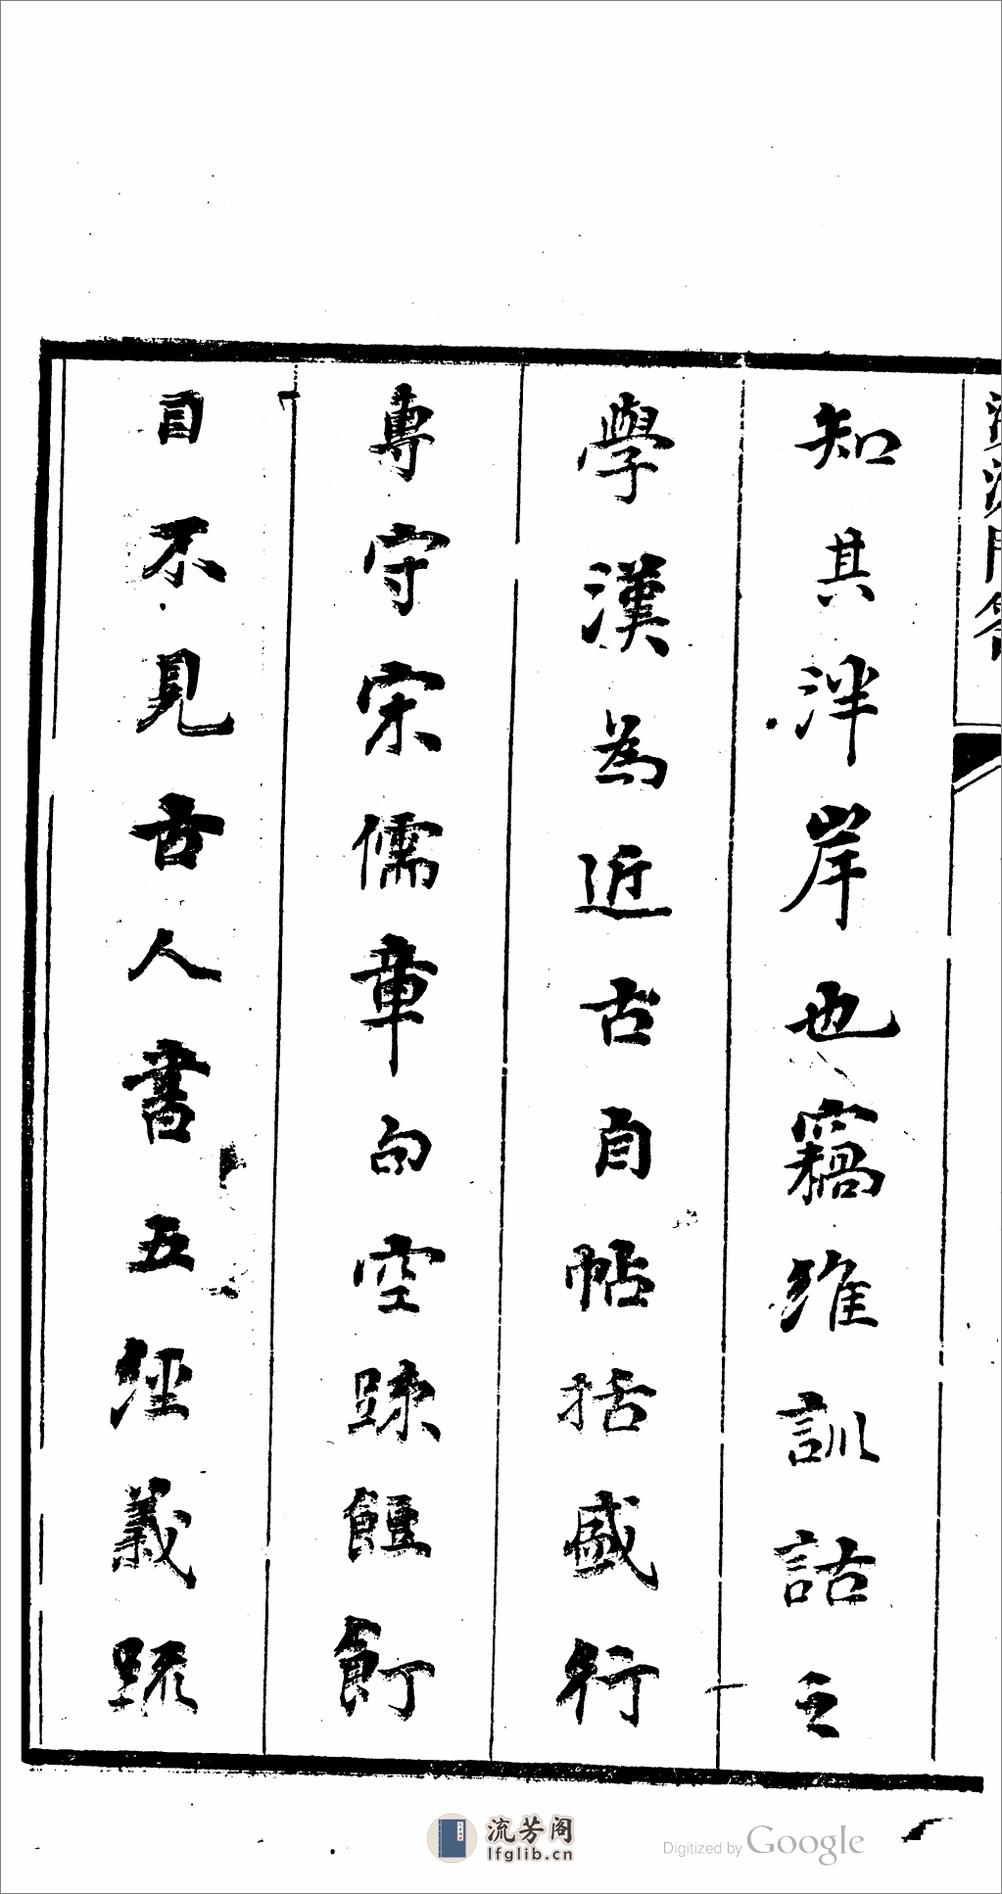 知其泮岸也竊維訓詁之
學漢為近古自帖括盛行
專守宋儒章句空踈飣飣
目不見古人書五經義疏
流芳阁
lfglib.cn
Digitized by Google